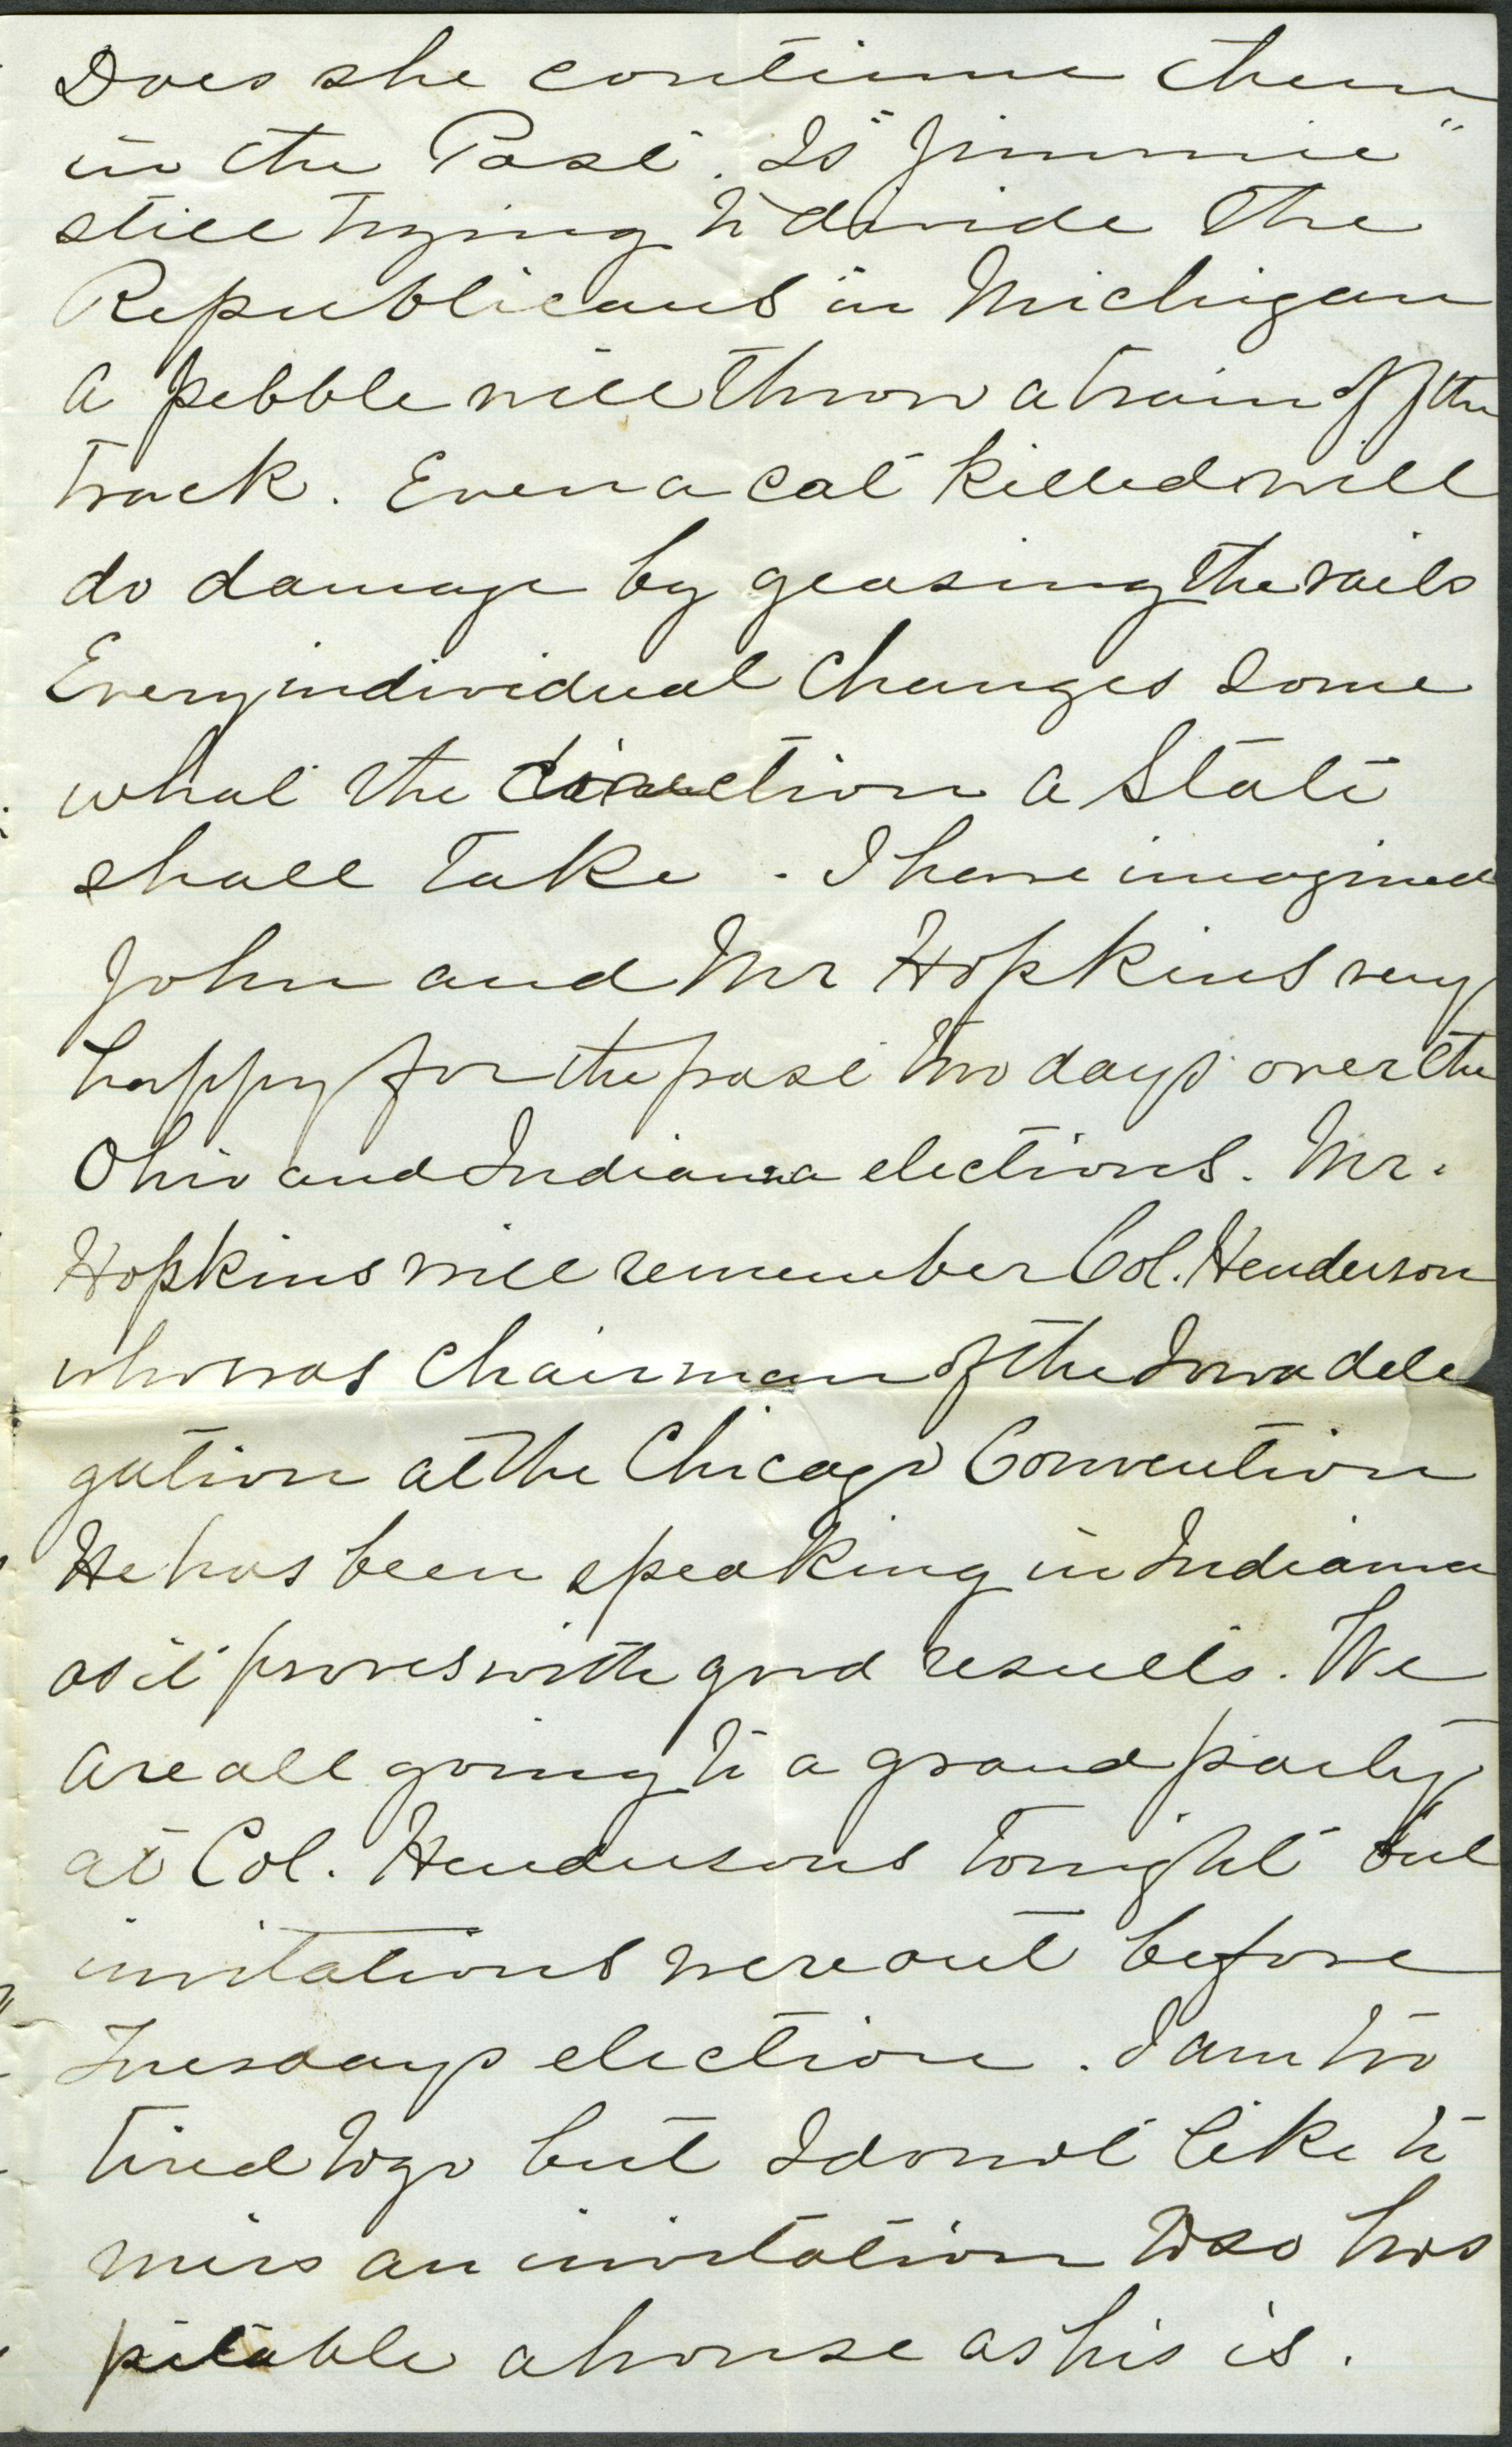 Does she continue them
in the Post. Is "Jimmie"
still trying to divide the
Republicans in Michigan
A pebble will throw a train off the
track. Even a cat killed will
do damage by geasing the rails
Every individual changes some
what the direction a State
shall take. I have imagined
John and Mr Hopkins very
happy for the past two days over the
Ohio and Indiana elections. Mr.
Hopkins will remember Col. Henderson
who was Chairman of the Iowa dele
gation at the Chicago Convention
He has been speaking in Indiana
as it proves with good results. We
are all going to a grand party
at Col. Hendersons tonight but
invitations were out before
Tuesdays election. I am too
tired to go but I do not like to
miss an invitation to so hos
pitable a house as his is.